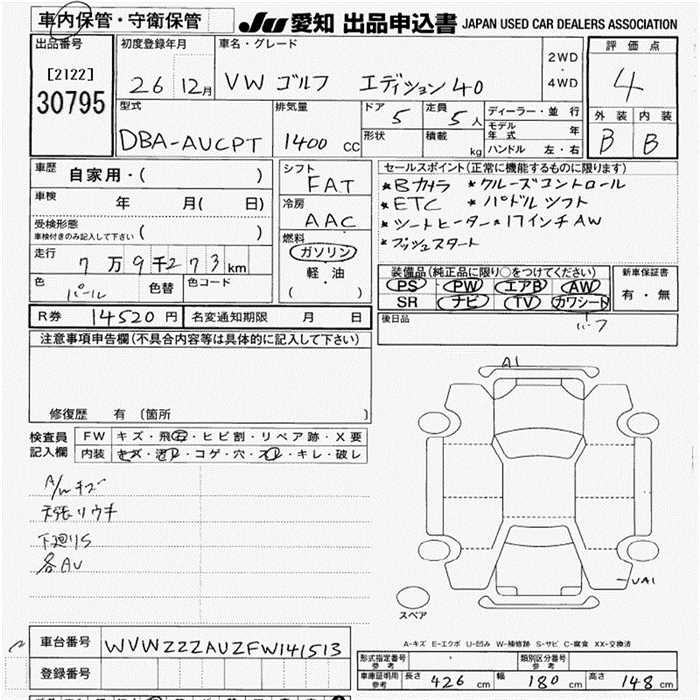 車内保管・守衛保管 JU 愛知 出品申込書 JAPAN USED CAR DEALERS ASSOCIATION
出品番号 初度登録年月 車名・グレード 評価点
[2122] 26 12月 VW ゴルフ エディション40 2WD・4WD 4
30795
型式 排気量 ドア 5 定員 5人 ディーラー・並行 外装 内装
DBA-AUCPT 1400 cc 形状 積載 kg モデル年式 年 B B
ハンドル 左・右
車歴 自家用・( ) シフト FAT セールスポイント(正常に機能するものに限ります)
車検 年 月( 日) 冷房 AAC *Bカメラ *クルーズコントロール
*ETC *パドルシフト
受検形態 車検付きのみ記入して下さい ( ) 燃料 *シートヒーター *17インチAW
ガソリン *プッシュスタート
走行 7万9千273km 軽・油 ( )
装備品(純正品に限り○をつけてください) 新車保証書
色 パール 色替 色コード PS PW エアB AW 有・無
SR ナビ TV カワシート
ハーフ
R券 14520円 名変通知期限 月 日 後日品
注意事項申告欄(不具合内容等は具体的に記入して下さい)
修復歴 有 〔箇所 〕
検査員記入欄 FW キズ・飛石・ヒビ割・リペア跡・X要
内装 キズ・汚レ・コゲ・穴・スレ・キレ・破レ
A1
A/Wキズ
天張リウチ
下廻りS
各AU
UA1
スペア
A-キズ E-エクボ U-凹み W-補修跡 S-サビ C-腐食 XX-交換済
車台番号 WVWZZZAUZFW141513
形式指定番号 参考 類別区分番号 参考
登録番号 車庫証明用 参考 長さ 426 cm 幅 180 cm 高さ 148 cm